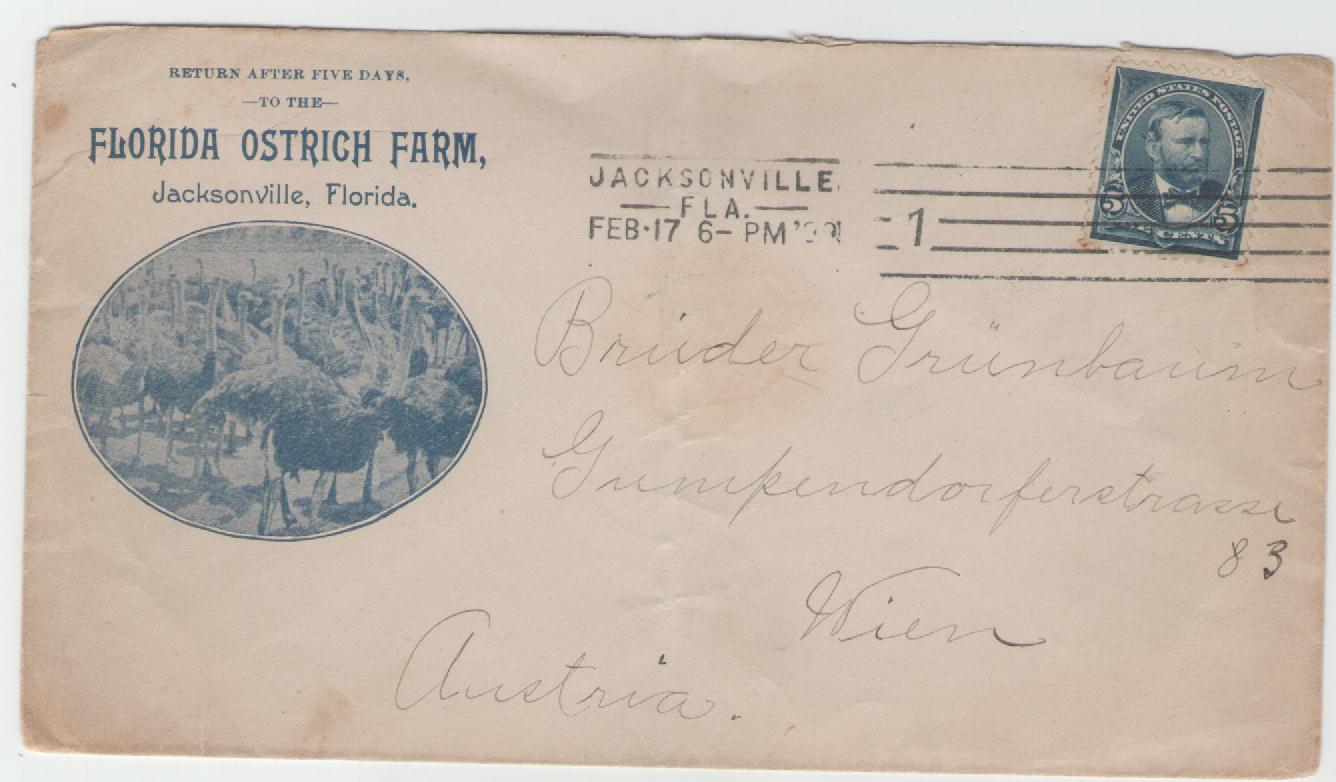 RETURN AFTER FIVE DAYS,
—TO THE—
FLORIDA OSTRICH FARM,
Jacksonville, Florida.
JACKSONVILLE,
FLA.
FEB·17 6–PM '99
1
UNITED STATES POSTAGE
5 5
FIVE CENTS
Brüder Grünbaum
Gumpendorferstrasse
83
Wien
Austria.